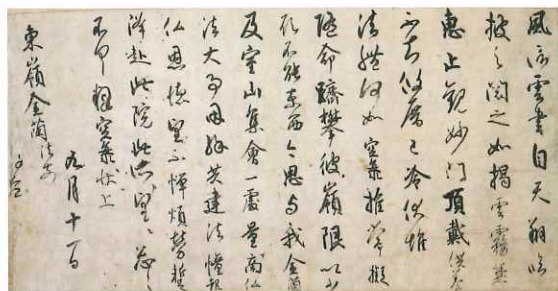 風信雲書自天翔臨
披之閲之如揭雲霧兼
恵止觀妙門頂戴供養
不知攸厝已冷伏惟
法體何如空海推常擬
随命躋攀彼嶺限以少
願不能東西今思与我金蘭
及室山集會一處量商仏
法大事因縁共建法幢報
仏恩徳望不憚煩勞蹔
降赴此院此所望々忩々
不具釋空海状上
九月十一日
東嶺金蘭法前
謹空